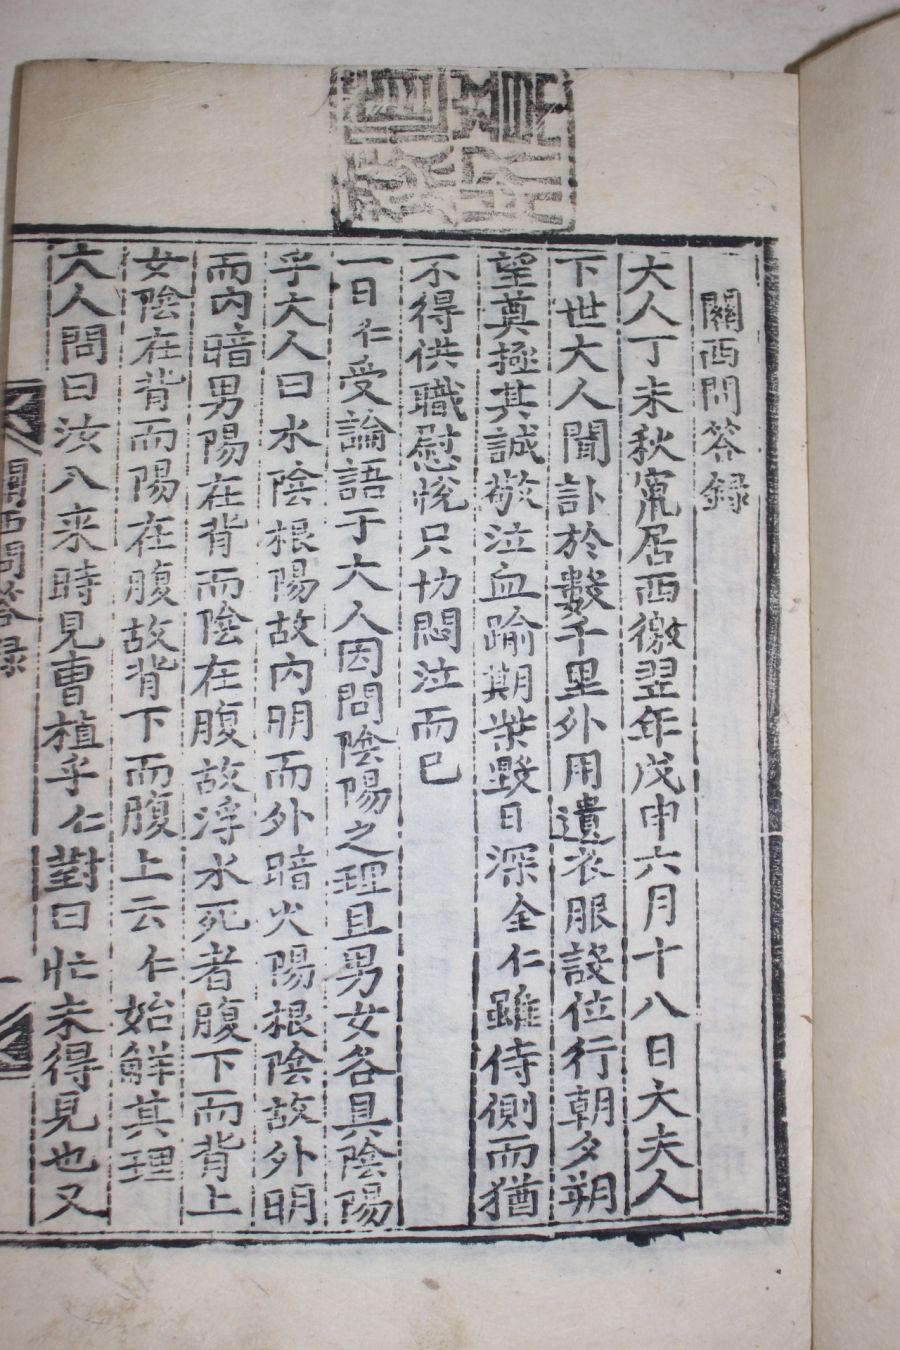 關西問答録
大人丁未秋竄居西徼翌年戊申六月十八日大夫人
下世大人聞訃於數千里外用遺衣服設位行朝夕朔
望奠極其誠敬泣血踰期柴毀日深全仁雖侍側而猶
不得供職慰悅只切悶泣而已
一日仁受論語于大人因問陰陽之理且男女各具陰陽
乎大人曰水陰根陽故内明而外暗火陽根陰故外明
而内暗男陽在背而陰在腹故浮水死者腹下而背上
女陰在背而陽在腹故背下而腹上云仁始鮮其理
大人問曰汝入来時見曺植乎仁對曰忙未得見也又
關西問答録
一